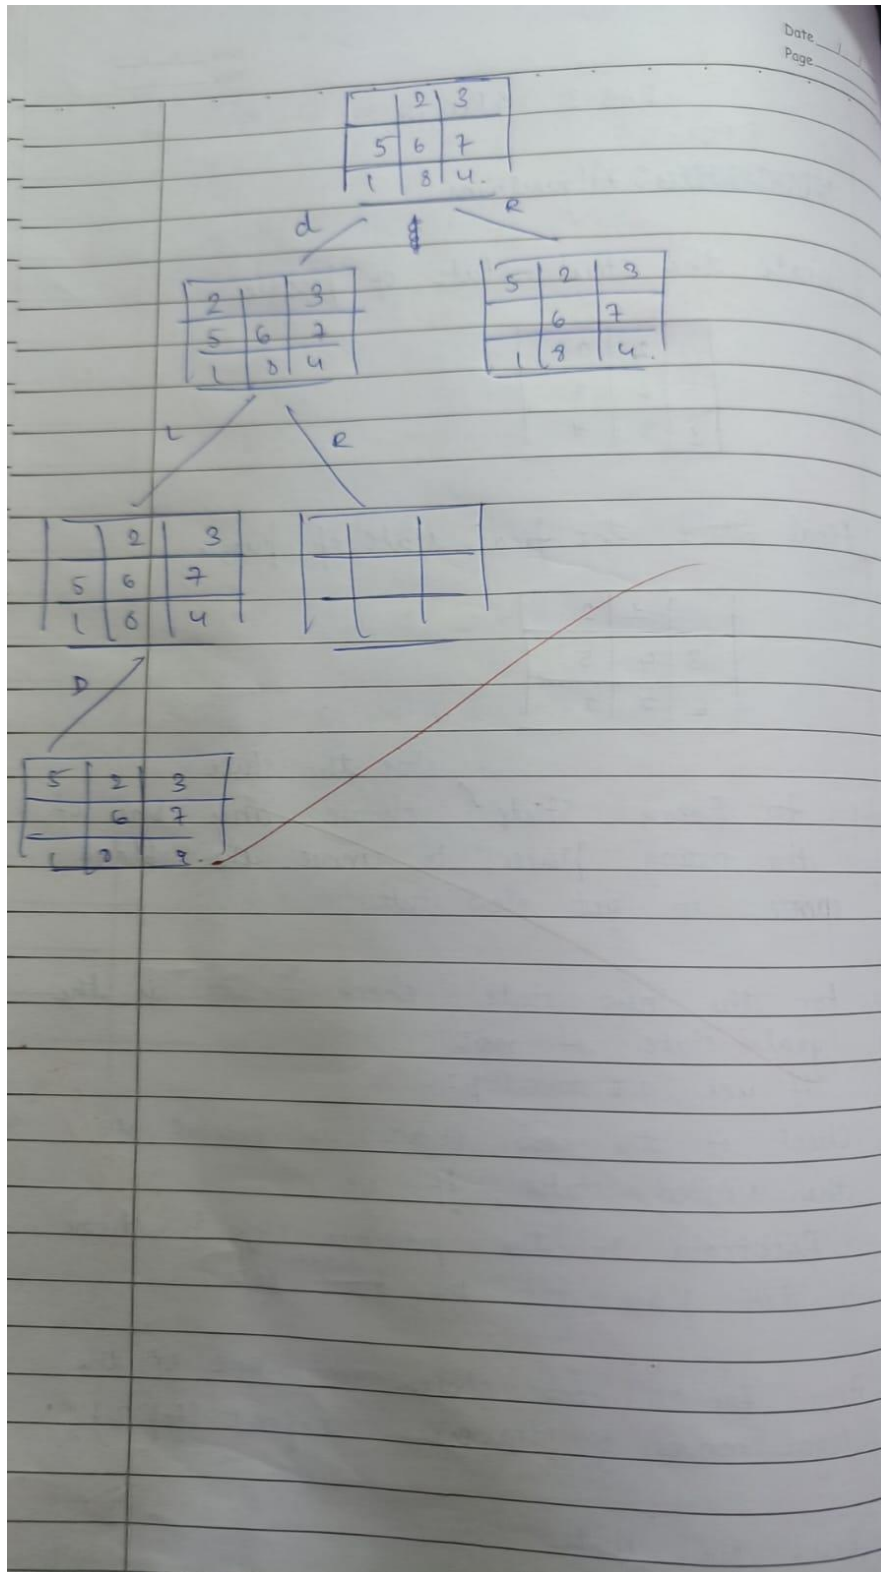 Date
Page
2 3
5 6 7
1 8 4.
d R
2 3
5 6 7
1 8 4
5 2 3
6 7
1 8 4.
L R
2 3
5 6 7
1 8 4
D
5 2 3
6 7
1 8